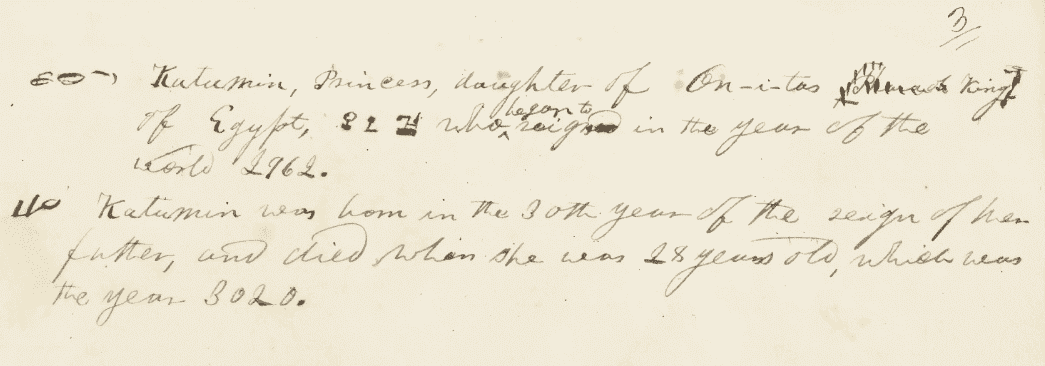 3
Katumin, Princess, daughter of On-i-tas King
of Egypt, who began to reign in the year of the
world 2962.
Katumin was born in the 30th year of the reign of her
father, and died when she was 28 years old, which was
the year 3020.